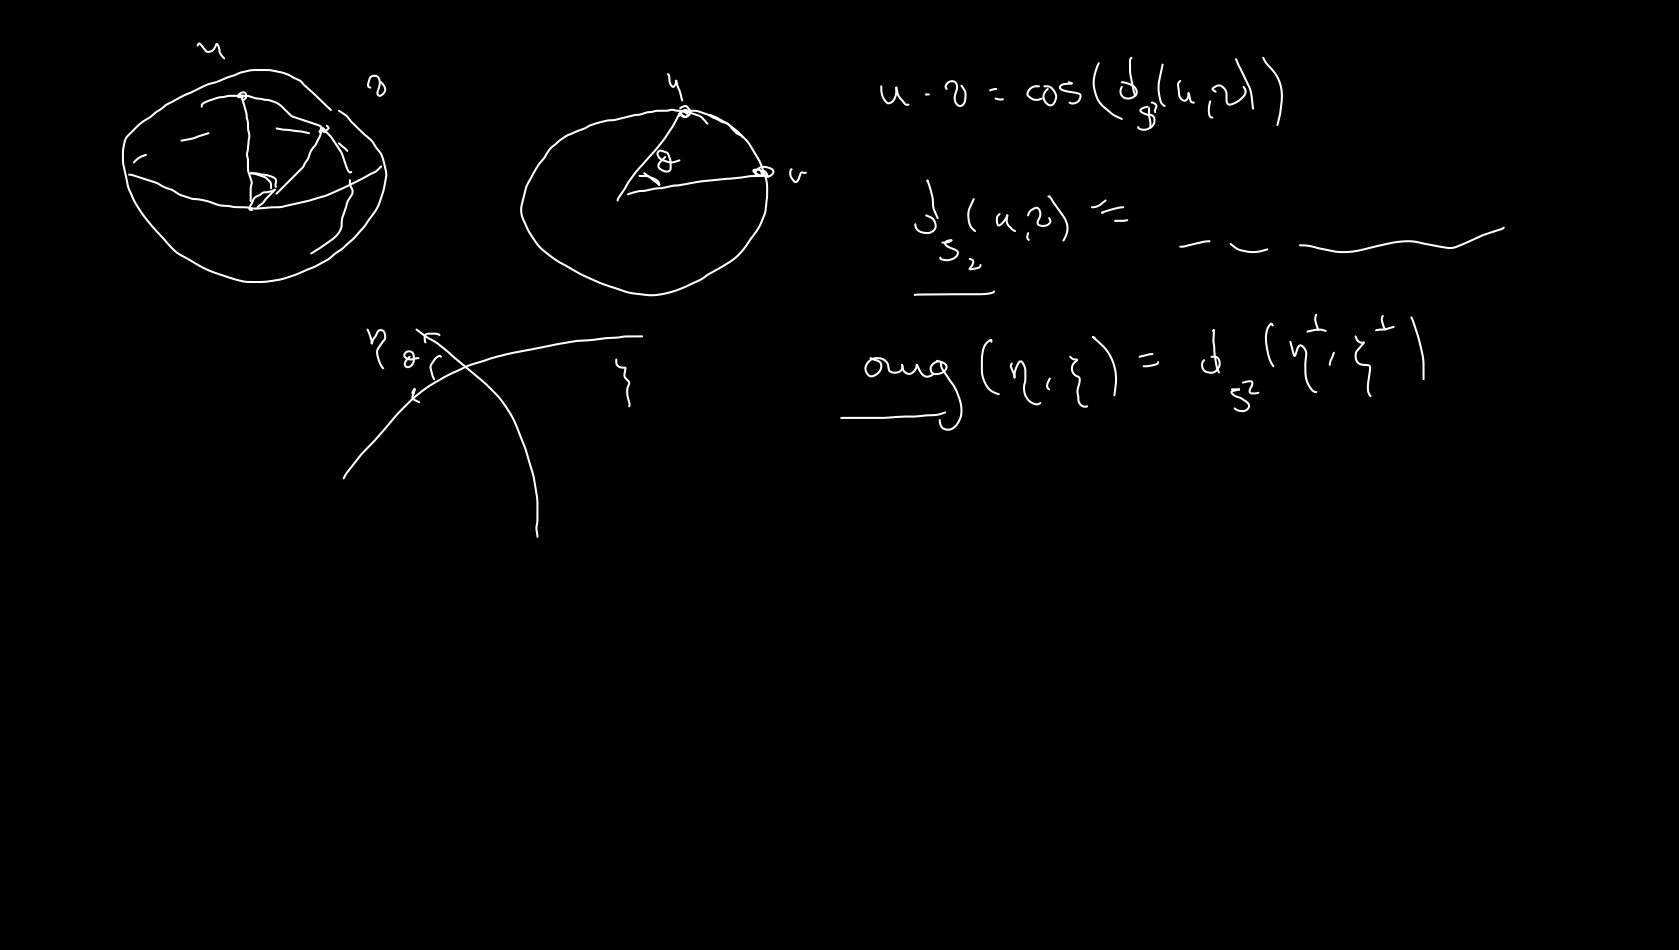 u
v
u
v
θ
u · v = cos(d_{S²}(u,v))
d_{S_2}(u,v) =
η
θ
ξ
ang(η,ξ) = d_{S²}(η^⊥, ξ^⊥)